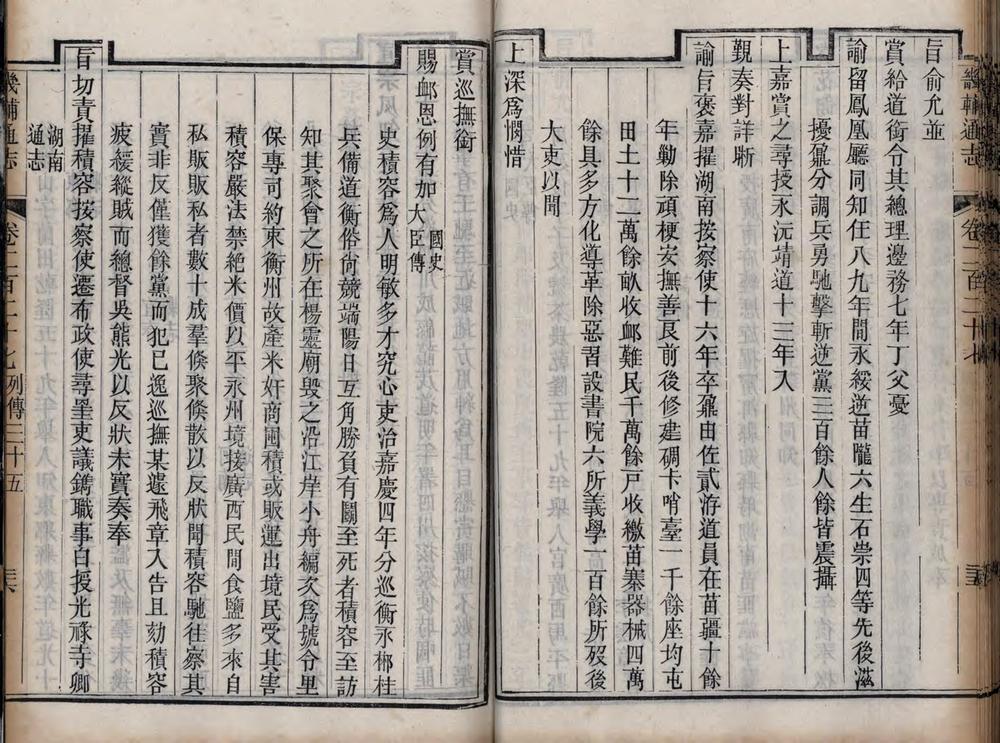 旨俞允並
賞給道銜令其總理邊務七年丁父憂
諭留鳳凰廳同知任八九年間永綏逆苗隴六生石崇四等先後滋
擾鼐分調兵勇馳擊斬逆黨三百餘人餘皆震攝
上嘉賞之尋授永沅靖道十三年入
覲奏對詳晰
諭旨褒嘉擢湖南按察使十六年卒鼐由佐貳游道員在苗疆十餘
年勦除頑梗安撫善良前後修建碉卡哨臺一千餘座均屯
田土十二萬餘畝收卹難民千萬餘戶收繳苗寨器械四萬
餘具多方化導革除惡習設書院六所義學一百餘所歿後
大吏以聞
上深爲憫惜
賞巡撫銜
賜卹恩例有加國史大臣傳
史積容爲人明敏多才究心吏治嘉慶四年分巡衡永郴桂
兵備道衡俗尚競端陽日互角勝負有鬬至死者積容至訪
知其聚會之所在楊靈廟毁之沿江岸小舟編次爲號令里
保專司約束衡州故產米奸商囤積或販運出境民受其害
積容嚴法禁絕米價以平永州境接廣西民間食鹽多來自
私販販私者數十成羣倐聚倐散以反狀聞積容馳往察其
實非反僅獲餘黨而犯已逸巡撫某遽飛章入告且劾積容
疲緩縱賊而總督吳熊光以反狀未實奏奉
旨切責擢積容按察使遷布政使尋罣吏議鐫職事白授光祿寺卿
湖南通志
畿輔通志
卷二百二十七
列傳三十五